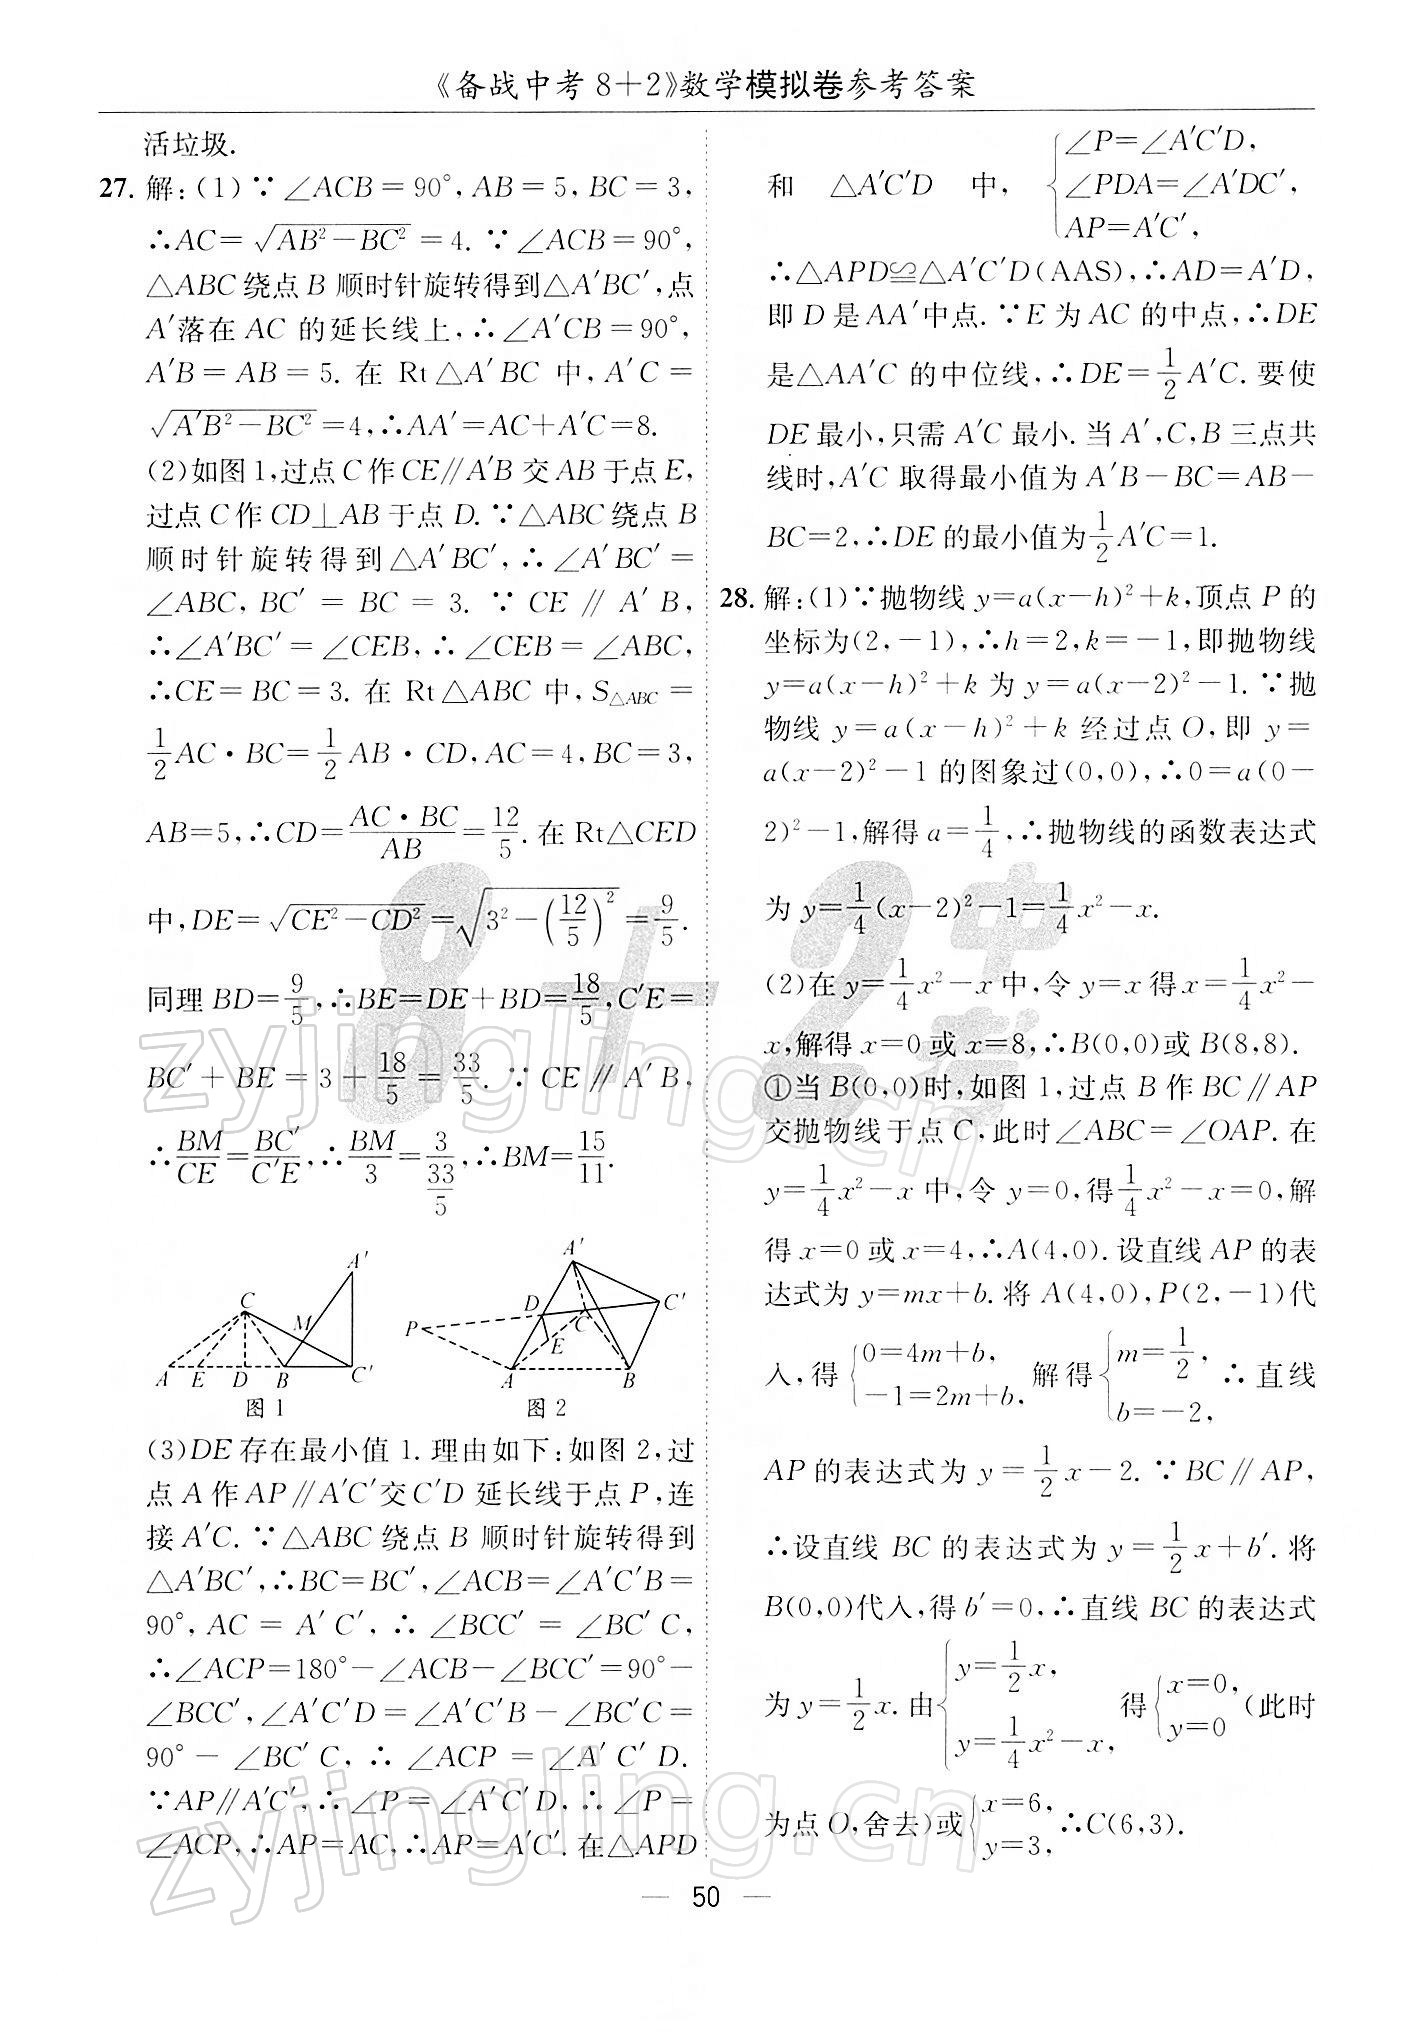 《备战中考 8+2》数学模拟卷参考答案
活垃圾.
27. 解:(1)∵∠ACB=90°,AB=5,BC=3,
∴AC=√(AB²-BC²)=4. ∵∠ACB=90°,
△ABC绕点B顺时针旋转得到△A′BC′,点
A′落在AC的延长线上,∴∠A′CB=90°,
A′B=AB=5. 在Rt△A′BC中,A′C=
√(A′B²-BC²)=4,∴AA′=AC+A′C=8.
(2)如图1,过点C作CE∥A′B交AB于点E,
过点C作CD⊥AB于点D. ∵△ABC绕点B
顺时针旋转得到△A′BC′,∴∠A′BC′=
∠ABC,BC′=BC=3. ∵CE∥A′B,
∴∠A′BC′=∠CEB,∴∠CEB=∠ABC,
∴CE=BC=3. 在Rt△ABC中,S△ABC=
1/2AC·BC=1/2AB·CD,AC=4,BC=3,
AB=5,∴CD=AC·BC/AB=12/5. 在Rt△CED
中,DE=√(CE²-CD²)=√(3²-(12/5)²)=9/5.
同理BD=9/5,∴BE=DE+BD=18/5,C′E=
BC′+BE=3+18/5=33/5. ∵CE∥A′B,
∴BM/CE=BC′/C′E,∴BM/3=3/(33/5),∴BM=15/11.
A′
C
M
A E D B C′
图1
A′
D
C′
P
C
E
A
B
图2
(3)DE存在最小值1. 理由如下:如图2,过
点A作AP∥A′C′交C′D延长线于点P,连
接A′C. ∵△ABC绕点B顺时针旋转得到
△A′BC′,∴BC=BC′,∠ACB=∠A′C′B=
90°,AC=A′C′,∴∠BCC′=∠BC′C,
∴∠ACP=180°-∠ACB-∠BCC′=90°-
∠BCC′,∠A′C′D=∠A′C′B-∠BC′C=
90°-∠BC′C,∴∠ACP=∠A′C′D.
∵AP∥A′C′,∴∠P=∠A′C′D,∴∠P=
∠ACP,∴AP=AC,∴AP=A′C′. 在△APD
和△A′C′D中,{∠P=∠A′C′D,
∠PDA=∠A′DC′,
AP=A′C′,
∴△APD≌△A′C′D(AAS),∴AD=A′D,
即D是AA′中点. ∵E为AC的中点,∴DE
是△AA′C的中位线,∴DE=1/2A′C. 要使
DE最小,只需A′C最小. 当A′,C,B三点共
线时,A′C取得最小值为A′B-BC=AB-
BC=2,∴DE的最小值为1/2A′C=1.
28. 解:(1)∵抛物线y=a(x-h)²+k,顶点P的
坐标为(2,-1),∴h=2,k=-1,即抛物线
y=a(x-h)²+k为y=a(x-2)²-1. ∵抛
物线y=a(x-h)²+k经过点O,即y=
a(x-2)²-1的图象过(0,0),∴0=a(0-
2)²-1,解得a=1/4,∴抛物线的函数表达式
为y=1/4(x-2)²-1=1/4x²-x.
(2)在y=1/4x²-x中,令y=x得x=1/4x²-
x,解得x=0或x=8,∴B(0,0)或B(8,8).
①当B(0,0)时,如图1,过点B作BC∥AP
交抛物线于点C,此时∠ABC=∠OAP. 在
y=1/4x²-x中,令y=0,得1/4x²-x=0,解
得x=0或x=4,∴A(4,0). 设直线AP的表
达式为y=mx+b. 将A(4,0),P(2,-1)代
入,得{0=4m+b, -1=2m+b, 解得{m=1/2, b=-2, ∴直线
AP的表达式为y=1/2x-2. ∵BC∥AP,
∴设直线BC的表达式为y=1/2x+b′. 将
B(0,0)代入,得b′=0,∴直线BC的表达式
为y=1/2x. 由{y=1/2x, y=1/4x²-x, 得{x=0, y=0 (此时
为点O,舍去)或{x=6, y=3, ∴C(6,3).
8+2中考
zyjingling.cn
zyjingling.cn
— 50 —